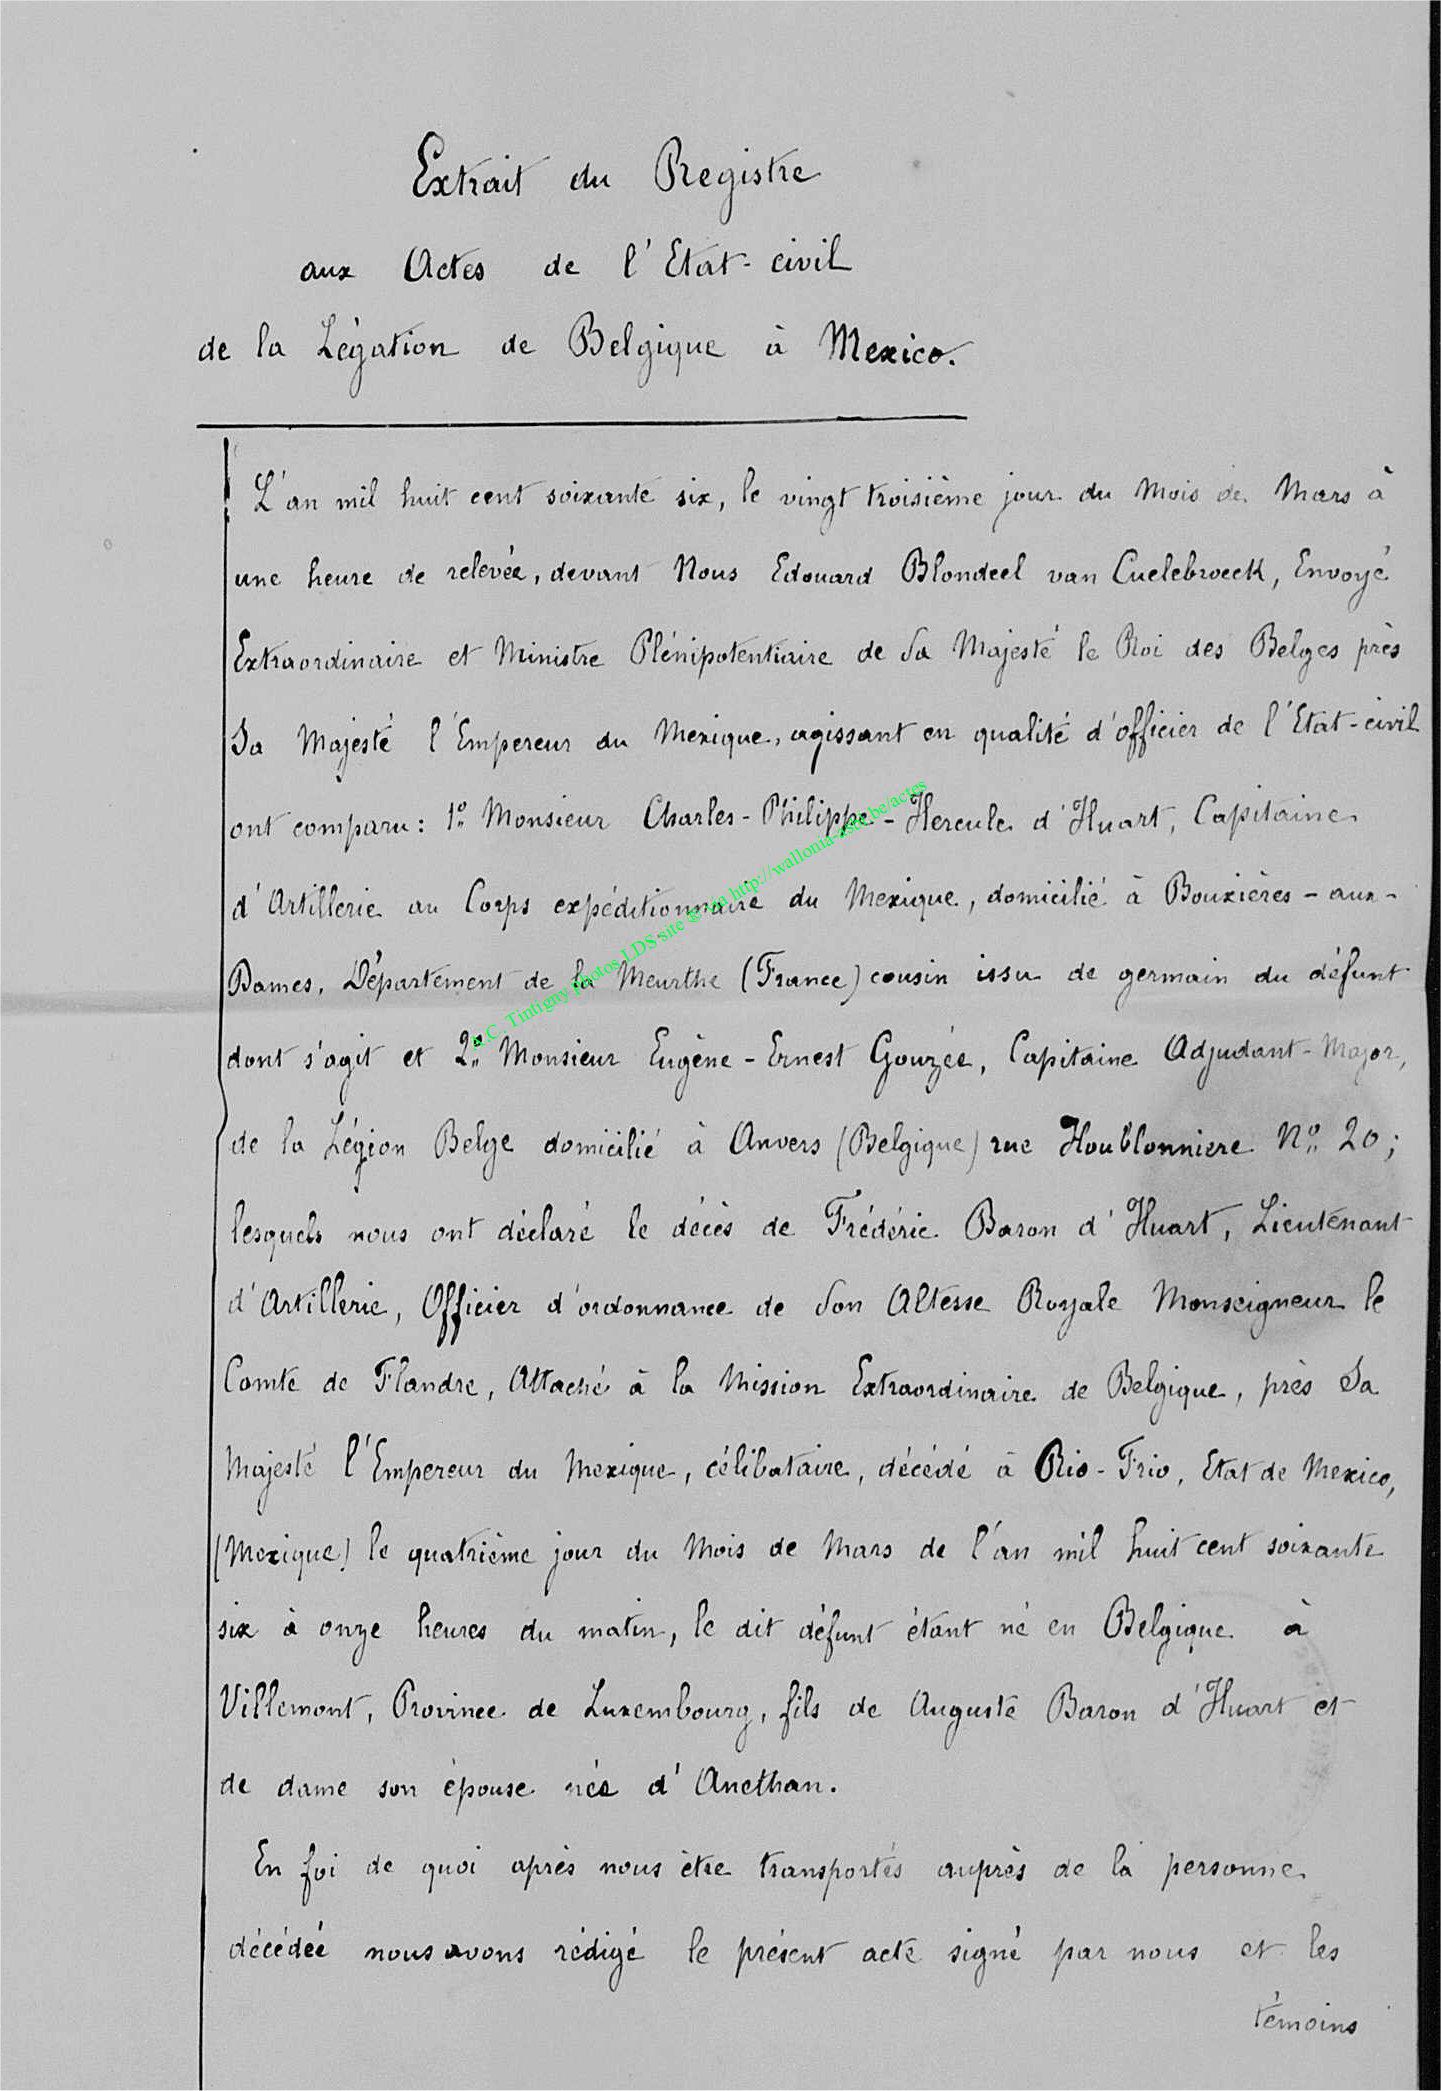 Extrait du Registre
aux Actes de l'Etat-civil
de la Légation de Belgique à Mexico.
L'an mil huit cent soixante six, le vingt troisième jour du Mois de Mars à
une heure de relevée, devant Nous Edouard Blondeel van Cuelebroeck, Envoyé
Extraordinaire et Ministre Plénipotentiaire de Sa Majesté le Roi des Belges près
Sa Majesté l'Empereur du Mexique, agissant en qualité d'officier de l'Etat-civil
ont comparu: 1º Monsieur Charles-Philippe-Hercule d'Huart, Capitaine
d'Artillerie au Corps expéditionnaire du Mexique, domicilié à Bouxières-aux-
Dames, Département de la Meurthe (France) cousin issu de germain du défunt
dont s'agit et 2º Monsieur Eugène-Ernest Gouzée, Capitaine Adjudant-Major,
de la Légion Belge domicilié à Anvers (Belgique) rue Houblonniere Nº 20;
lesquels nous ont déclaré le décès de Frédéric Baron d'Huart, Lieutenant
d'Artillerie, Officier d'ordonnance de Son Altesse Royale Monseigneur le
Comte de Flandre, Attaché à la Mission Extraordinaire de Belgique, près Sa
Majesté l'Empereur du Mexique, célibataire, décédé à Rio-Frio, Etat de Mexico,
(Mexique) le quatrième jour du Mois de Mars de l'an mil huit cent soixante
six à onze heures du matin, le dit défunt étant né en Belgique à
Villemont, Province de Luxembourg, fils de Auguste Baron d'Huart et
de dame son épouse née d'Anethan.
En foi de quoi après nous être transportés auprès de la personne
décédée nous avons rédigé le présent acte signé par nous et les
témoins
A.C. Tintigny photos LDS site © via http://wallonia-asbl.be/actes